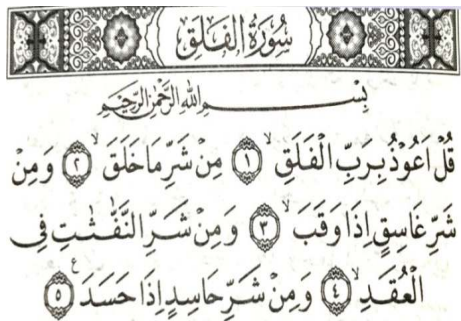 سُورَةُ الْفَلَقِ
بِسْمِ اللهِ الرَّحْمٰنِ الرَّحِيْمِ
قُلْ اَعُوْذُ بِرَبِّ الْفَلَقِۙ ﴿١﴾ مِنْ شَرِّ مَا خَلَقَۙ ﴿٢﴾ وَمِنْ
شَرِّ غَاسِقٍ اِذَا وَقَبَۙ ﴿٣﴾ وَمِنْ شَرِّ النَّفّٰثٰتِ فِى
الْعُقَدِۙ ﴿٤﴾ وَمِنْ شَرِّ حَاسِدٍ اِذَا حَسَدَ ࣖ ﴿٥﴾